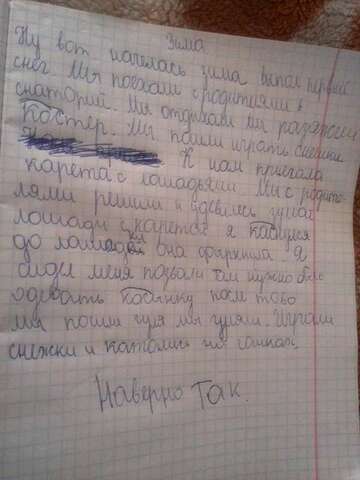 Зима
Ну вот началась зима выпал первый
снег. Мы поехали с родитиями в
снаторий. Мы отдыхали мы разожгли
Костер. Мы пошли играть снешки
К нам приехала
карета с лошадьями Мы с родите-
лями решили и
лошади карется я каснулся
до лошадки она фыркнула. Я
меня позвали там нужно было
одевать косынку после тово
мы пошли гуля мы гуляли. Играли
снежки и католись на санках.
Наверно Так.